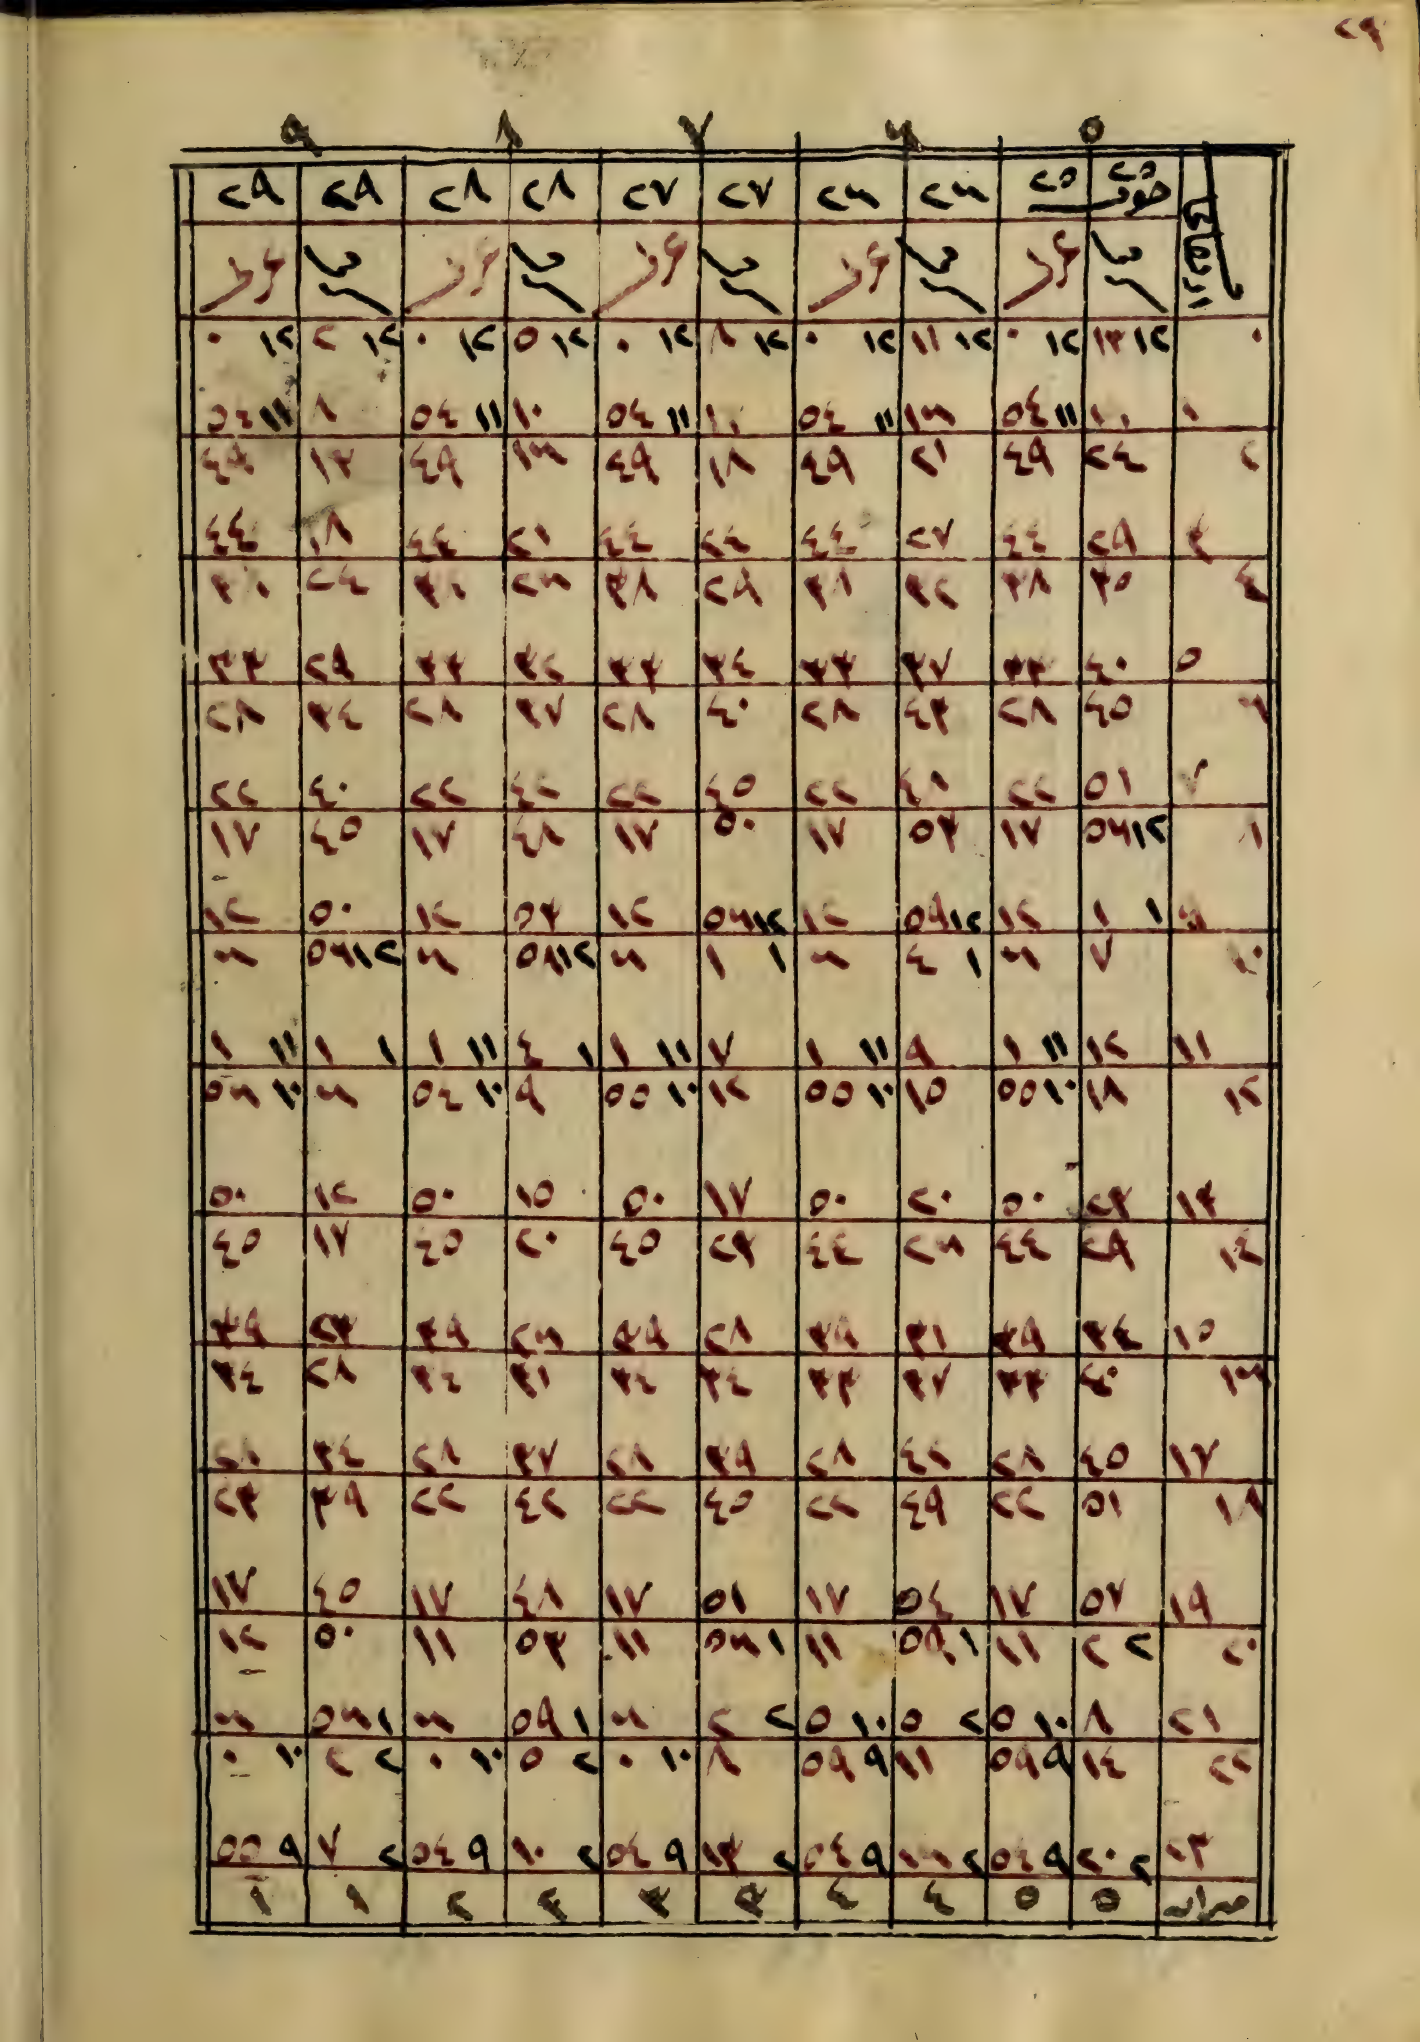 ٢٩
٥ ٦ ٧ ٨ ٩
حوت ٢٥ ٢٥ ٢٦ ٢٦ ٢٧ ٢٧ ٢٨ ٢٨ ٢٩ ٢٩
٠ ١٢ ١٣ ١٢ ٠ ١٢ ١١ ١٢ ٠ ١٢ ٨ ١٢ ٠ ١٢ ٥ ١٢ ٠ ١٢ ٢ ١٢ ٠
١ ١١ ٥٤ ١٦ ١١ ٥٤ ١١ ٥٤ ١٠ ١١ ٥٤ ٨ ١١ ٥٤
٢ ٢٤ ٤٩ ٢١ ٤٩ ١٨ ٤٩ ١٦ ٤٩ ١٣ ٤٩
٣ ٢٩ ٤٤ ٢٧ ٤٤ ٢٤ ٤٤ ٢١ ٤٤ ١٨ ٤٤
٤ ٣٥ ٣٨ ٣٢ ٣٨ ٢٩ ٣٨ ٢٦ ٣٨ ٢٤ ٣٨
٥ ٤٠ ٣٣ ٣٧ ٣٣ ٣٤ ٣٣ ٣٢ ٣٣ ٢٩ ٣٣
٦ ٤٥ ٢٨ ٤٣ ٢٨ ٤٠ ٢٨ ٣٧ ٢٨ ٣٤ ٢٨
٧ ٥١ ٢٢ ٤٨ ٢٢ ٤٥ ٢٢ ٤٢ ٢٢ ٤٠ ٢٢
٨ ١٢ ٥٦ ١٧ ٥٣ ١٧ ٥٠ ١٧ ٤٨ ١٧ ٤٥ ١٧
٩ ١ ١ ١٢ ١٢ ٥٩ ١٢ ١٢ ٥٦ ١٢ ٥٣ ١٢ ٥٠ ١٢
١٠ ٧ ٦ ١ ٤ ٦ ١ ١ ٦ ١٢ ٥٨ ٦ ١٢ ٥٦ ٦
١١ ١٢ ١١ ١ ٩ ١١ ١ ٧ ١١ ١ ١ ٤ ١١ ١ ١ ١ ١١ ١
١٢ ١٨ ١٠ ٥٥ ١٥ ١٠ ٥٥ ١٢ ١٠ ٥٥ ٩ ١٠ ٥٤ ٦ ١٠ ٥٦
١٣ ٢٣ ٥٠ ٢٠ ٥٠ ١٧ ٥٠ ١٥ ٥٠ ١٢ ٥٠
١٤ ٢٩ ٤٤ ٢٦ ٤٤ ٢٣ ٤٥ ٢٠ ٤٥ ١٧ ٤٥
١٥ ٣٤ ٣٩ ٣١ ٣٩ ٢٨ ٣٩ ٢٦ ٣٩ ٢٣ ٣٩
١٦ ٤٠ ٣٣ ٣٧ ٣٣ ٣٤ ٣٤ ٣١ ٣٤ ٢٨ ٣٤
١٧ ٤٥ ٢٨ ٤٢ ٢٨ ٣٩ ٢٨ ٣٧ ٢٨ ٣٤ ٢٨
١٨ ٥١ ٢٢ ٤٩ ٢٢ ٤٥ ٢٢ ٤٢ ٢٢ ٣٩ ٢٣
١٩ ٥٧ ١٧ ٥٤ ١٧ ٥١ ١٧ ٤٨ ١٧ ٤٥ ١٧
٢٠ ٢ ٢ ١١ ١ ٥٩ ١١ ١ ٥٦ ١١ ٥٣ ١١ ٥٠ ١٢
٢١ ٨ ١٠ ٥ ٢ ٥ ١٠ ٥ ٢ ٢ ٦ ١ ٥٩ ٦ ١ ٥٦ ٦
٢٢ ١٤ ٩ ٥٩ ١١ ٩ ٥٩ ٨ ١٠ ٠ ٢ ٥ ١٠ ٠ ٢ ٢ ١٠ ٠
٢٣ ٢ ٢٠ ٩ ٥٤ ٢ ١٦ ٩ ٥٤ ٢ ١٣ ٩ ٥٤ ٢ ١٠ ٩ ٥٤ ٢ ٧ ٩ ٥٥
ميزان ٥ ٥ ٤ ٤ ٣ ٣ ٢ ٢ ١ ١